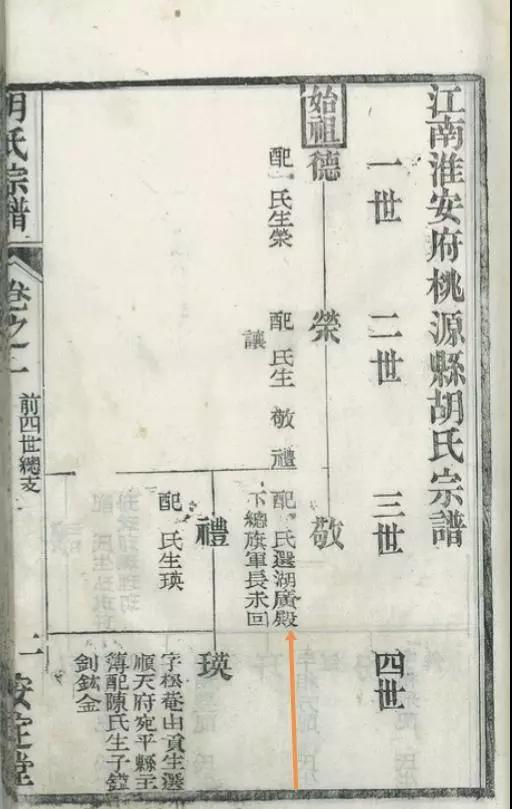 江南淮安府桃源縣胡氏宗譜
一世
二世
三世
四世
始祖
德
配 氏生榮
榮
配 氏生 敬 禮
讓
敬
配 氏選湖廣殿
下總旗軍長未回
禮
配 氏生瑛
瑛
字松菴由貢生選
順天府宛平縣主
簿配陳氏生子鎰
釗鈜金
胡氏宗譜
卷之一
前四世總支
安定堂